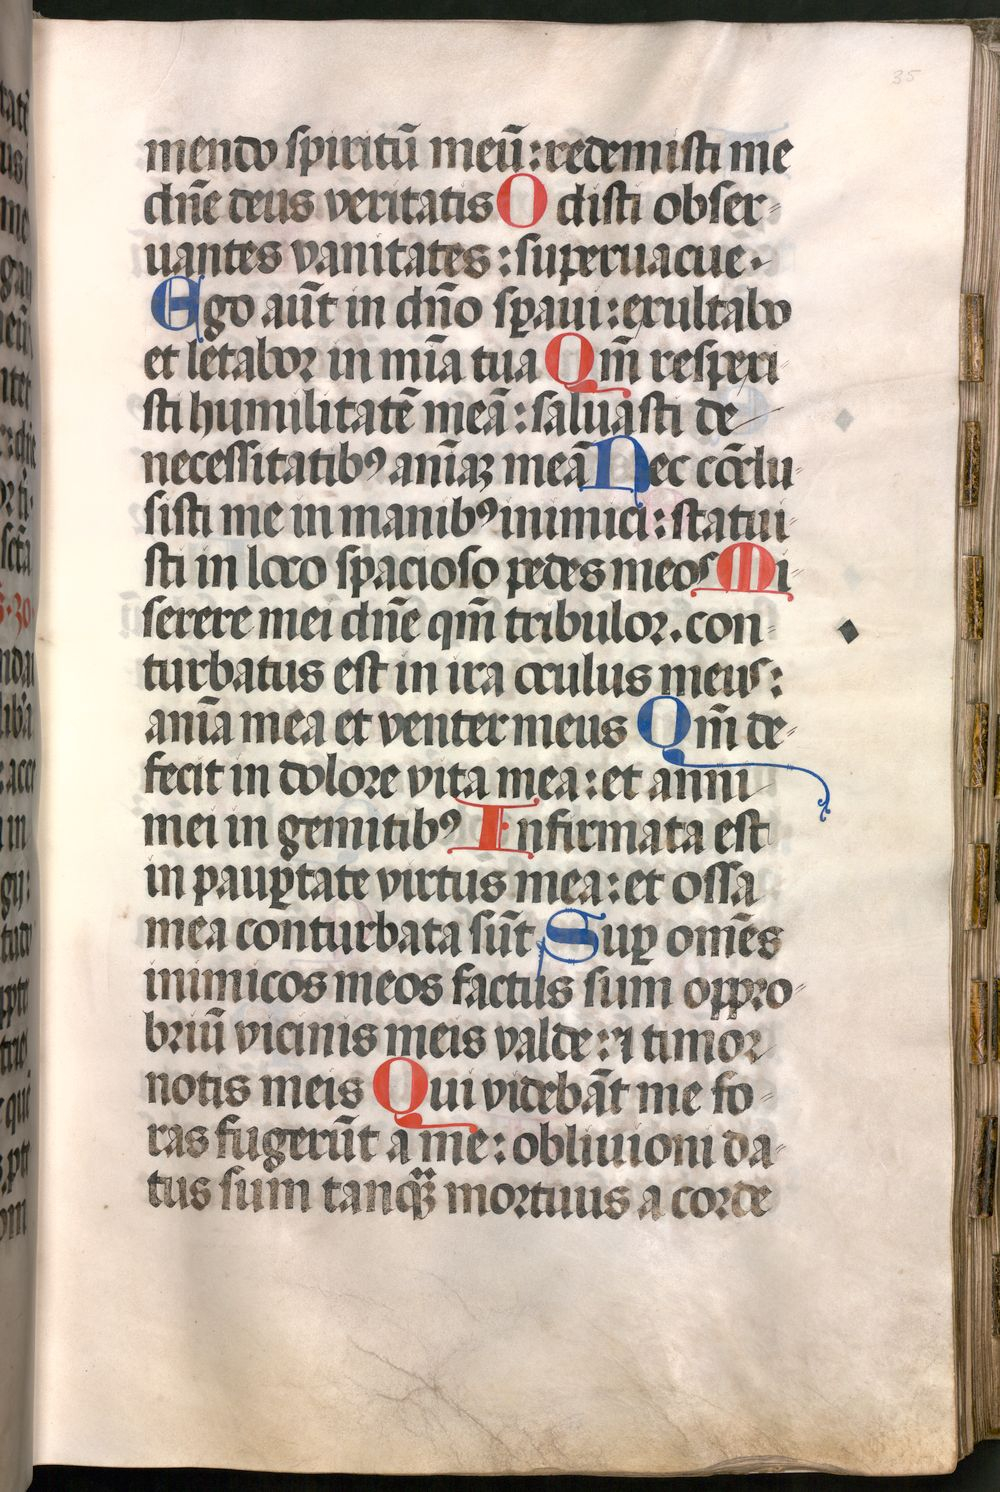 35
mendo spiritū meū : redemisti me
dn̄e deus veritatis Odisti obser-
uantes vanitates : superuacue.
Ego aūt in dn̄o sꝑaui : exultabo
et letabor in mīa tua Qm̄ respexi-
sti humilitatē meā : saluasti de
necessitatibꝰ anīaꝫ meā Nec cōclu-
sisti me in manibꝰ inimici : statui-
sti in loco spacioso pedes meos Mi-
serere mei dn̄e qm̄ tribulor. con-
turbatus est in ira oculus meus :
anīa mea et venter meus Qm̄ de-
fecit in dolore vita mea : et anni
mei in gemitibꝰ Infirmata est
in pauꝑtate virtus mea : et ossa
mea conturbata sūt Suꝑ omēs
inimicos meos factus sum oppro-
briū vicinis meis valde : ⁊ timor
notis meis Qui videbāt me fo-
ras fugerūt a me : obliuioni da-
tus sum tanqꝫ mortuus a corde